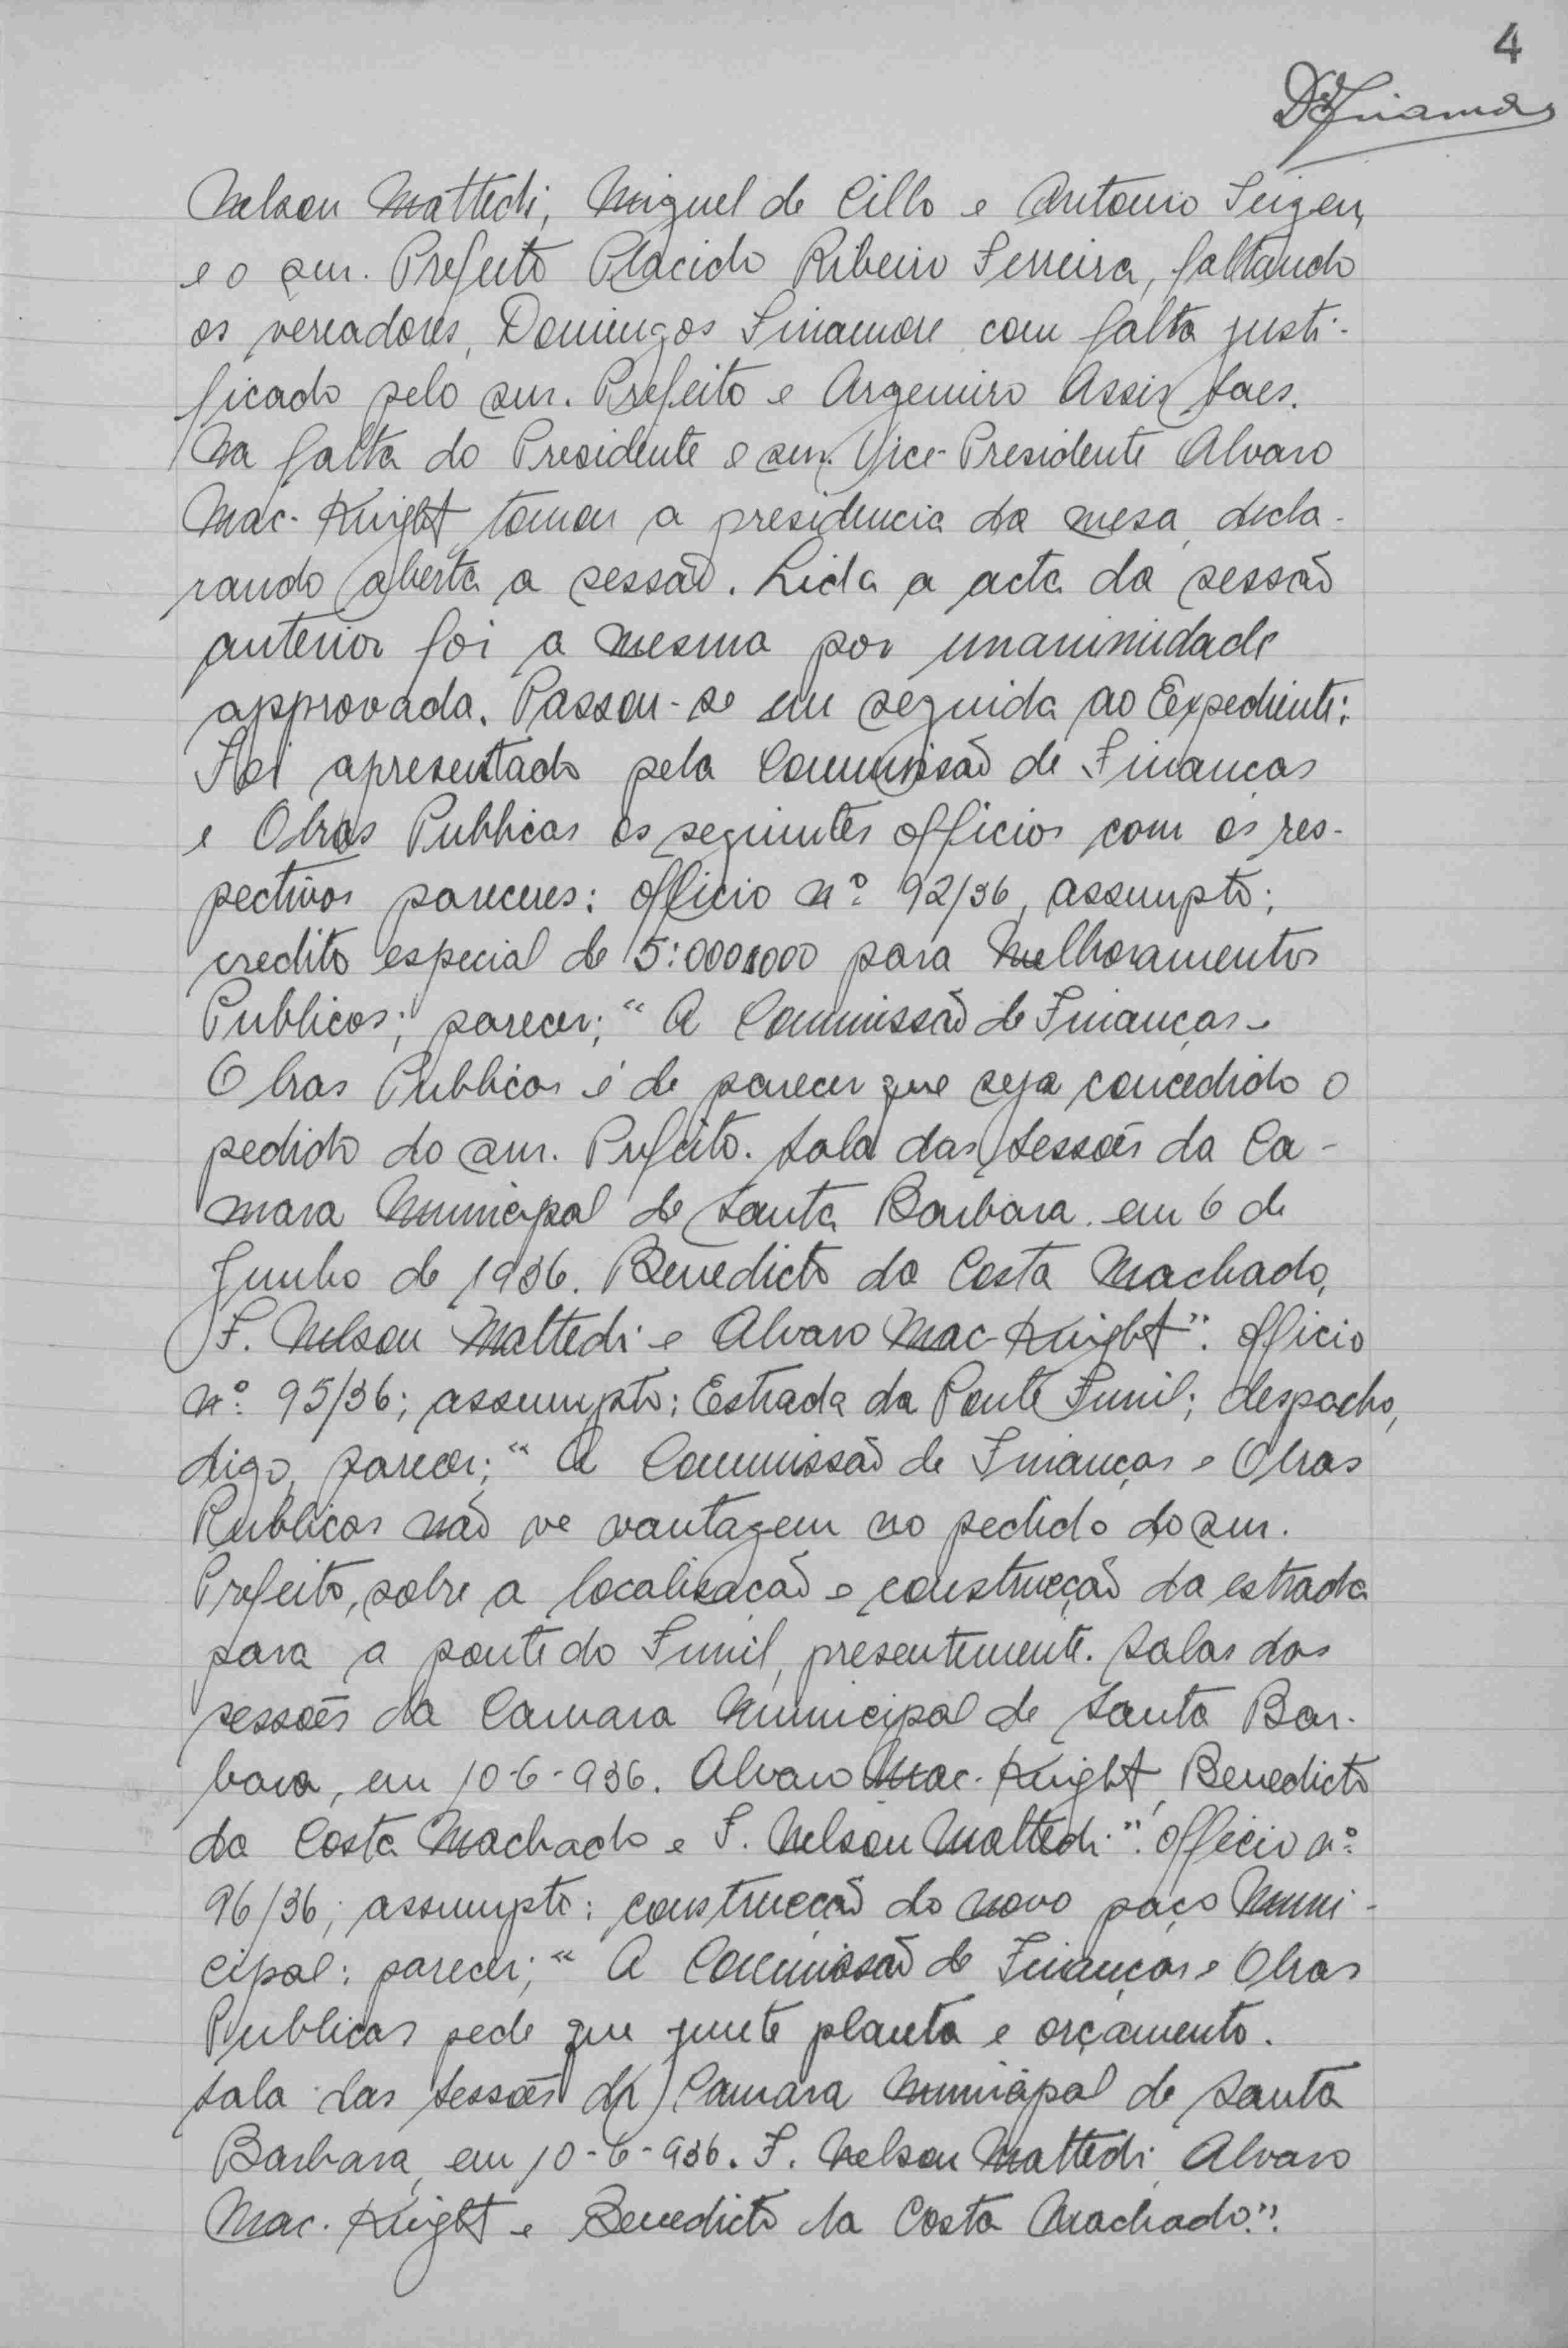 4
Nelson Mattedi, Miguel de Cillo e Antonio
e o snr. Prefeito Placido Ribeiro Ferreira, faltando
os vereadores, Domingos Finamore com falta justi-
ficado pelo snr. Prefeito e Argemiro Assis Saes.
Na falta do Presidente o snr. Vice-Presidente Alvaro
Mac-Knight tomou a presidencia da mesa, decla-
rando aberta a sessão. Lida a acta da sessão
anterior foi a mesma por unanimidade
approvada. Passou-se em seguida ao Expediente:
Foi apresentado pela Commissão de Finanças
e Obras Publicas os seguintes officios com os res-
pectivos pareceres: officio nº 92/36, assumpto;
credito especial de 5:000$000 para Melhoramentos
Publicos; parecer; "A Commissão de Finanças e
Obras Publicas é de parecer que seja concedido o
pedido do snr. Prefeito. Sala das Sessões da Ca-
mara Municipal de Santa Barbara. em 6 de
Junho de 1936. Benedicto da Costa Machado,
F. Nelson Mattedi e Alvaro Mac-Knight". officio
nº 95/36; assumpto; Estrada da Ponte Funil; despacho,
digo, parecer; "A Commissão de Finanças e Obras
Publicas não ve vantagem no pedido do snr.
Prefeito, sobre a localisação e construcção da estrada
para a ponte do Funil, presentemente. Salas das
sessões da Camara Municipal de Santa Bar-
bara, em 10-6-936. Alvaro Mac-Knight, Benedicto
da Costa Machado e F. Nelson Mattedi". officio nº
96/36; assumpto: construcção do novo paço Muni-
cipal: parecer; "A Commissão de Finanças e Obras
Publicas pede que junte planta e orçamento.
Sala das Sessões da Camara Municipal de Santa
Barbara, em 10-6-936. F. Nelson Mattedi, Alvaro
Mac-Knight e Benedicto da Costa Machado".